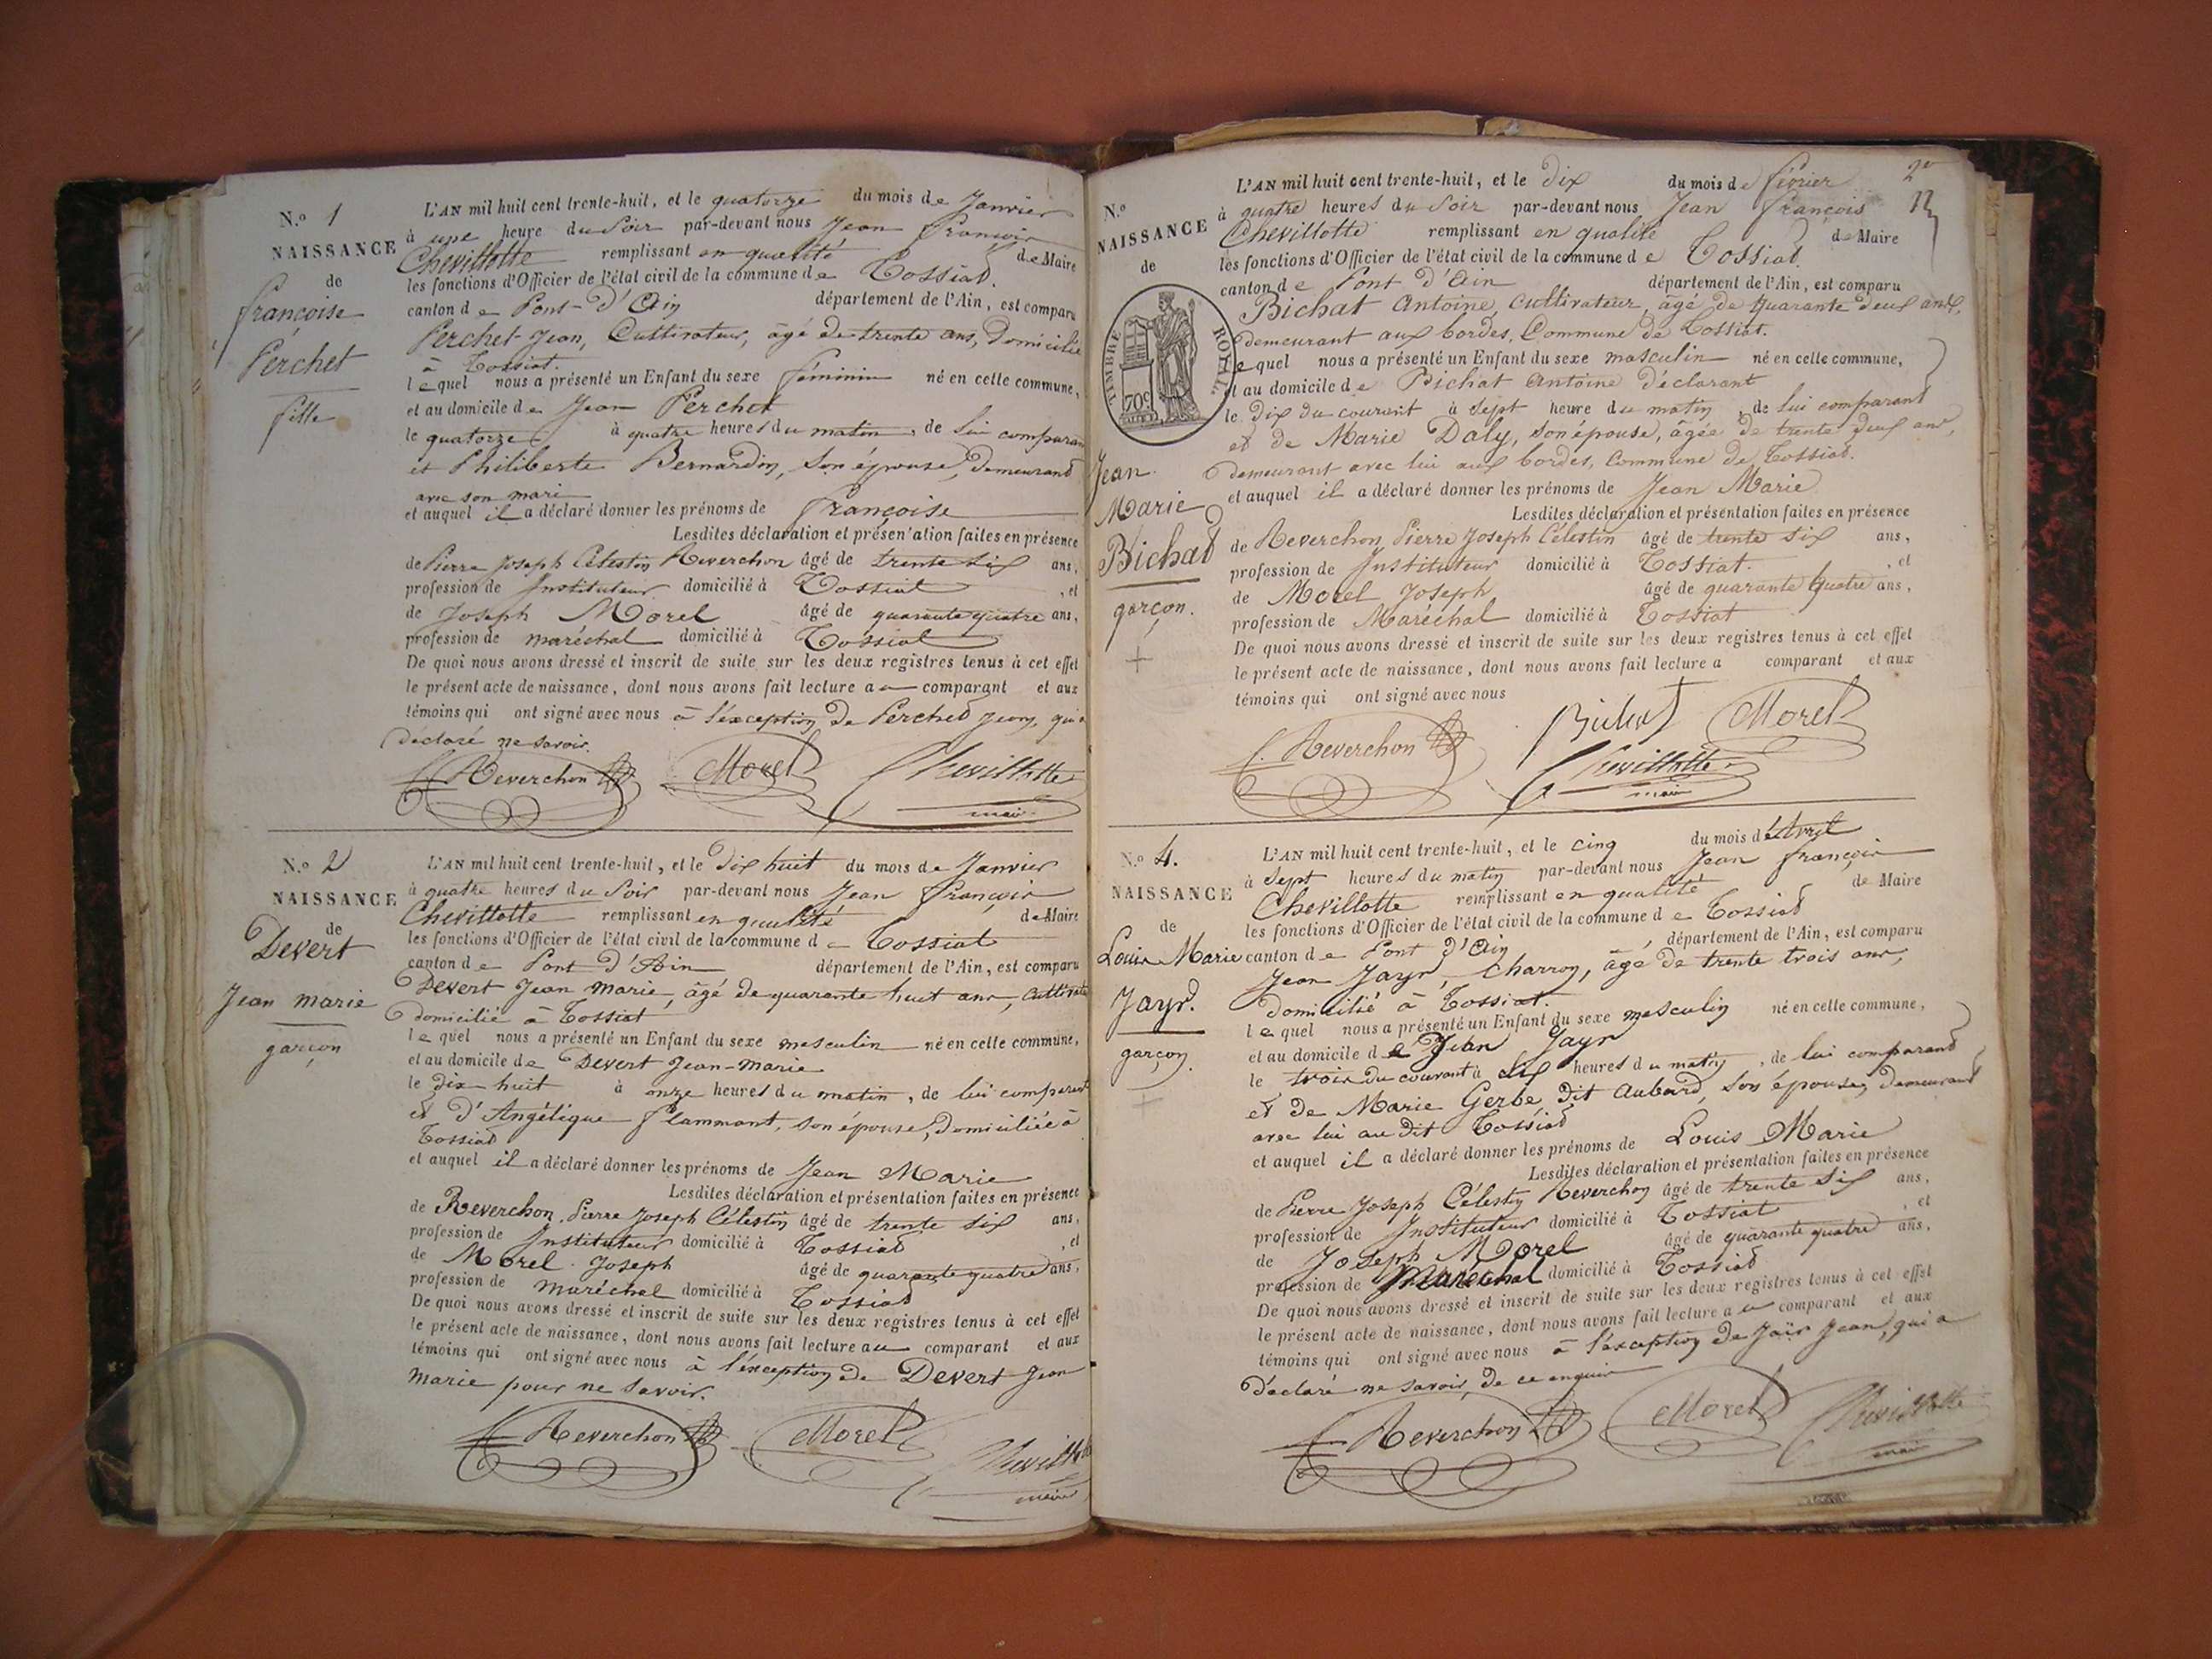 N.º 1
NAISSANCE
de
françoise
Perchet
fille
L'AN mil huit cent trente-huit, et le quatorze du mois de Janvier
à une heure du Soir par-devant nous Jean François
Chevillotte remplissant en qualité de Maire
les fonctions d'Officier de l'état civil de la commune de Tossiat.
canton de Pont-d'Ain département de l'Ain, est comparu
Perchet Jean, Cultivateur, âgé de trente ans, Domicilié
à Tossiat.
lequel nous a présenté un Enfant du sexe féminin né en cette commune,
et au domicile de Jean Perchet
le quatorze à quatre heures du matin, de lui comparan
et Philiberte Bernardin, son épouse, demeurant
avec son mari
et auquel il a déclaré donner les prénoms de françoise
Lesdites déclaration et présen'ation faites en présence
de Pierre Joseph Célestin Reverchon âgé de trente six ans,
profession de Instituteur domicilié à Tossiat, et
de Joseph Morel âgé de quarante quatre ans,
profession de maréchal domicilié à Tossiat
De quoi nous avons dressé et inscrit de suite sur les deux registres tenus à cet effet
le présent acte de naissance, dont nous avons fait lecture au comparant et aux
témoins qui ont signé avec nous à l'exception de Perchet Jean, qui a
déclaré ne savoir.
Reverchon Morel Chevillotte
maire
N.º 2
NAISSANCE
de
Devert
Jean marie
garçon
L'AN mil huit cent trente-huit, et le dix huit du mois de Janvier
à quatre heures du Soir par-devant nous Jean François
Chevillotte remplissant en qualité de Maire
les fonctions d'Officier de l'état civil de la commune de Tossiat
canton de Pont-d'Ain département de l'Ain, est comparu
Devert Jean marie, âgé de quarante huit ans, Cultivate
domicilié à Tossiat
lequel nous a présenté un Enfant du sexe masculin né en cette commune,
et au domicile de Devert Jean-marie
le dix-huit à onze heures du matin, de lui comparant
et d'Angélique flammant, son épouse, domiciliée à
Tossiat
et auquel il a déclaré donner les prénoms de Jean Marie
Lesdites déclaration et présentation faites en présence
de Reverchon, Pierre Joseph Célestin âgé de trente six ans,
profession de Instituteur domicilié à Tossiat, et
de Morel Joseph âgé de quarante quatre ans,
profession de maréchal domicilié à Tossiat
De quoi nous avons dressé et inscrit de suite sur les deux registres tenus à cet effet
le présent acte de naissance, dont nous avons fait lecture au comparant et aux
témoins qui ont signé avec nous à l'exception de Devert Jean
marie pour ne savoir.
Reverchon Morel Chevillotte
maire
2e
N.º
NAISSANCE
de
TIMBRE ROYAL.
70c
Jean
Marie
Bichat
garçon.
L'AN mil huit cent trente-huit, et le dix du mois de février
à quatre heures du Soir par-devant nous Jean François
Chevillotte remplissant en qualité de Maire
les fonctions d'Officier de l'état civil de la commune de Tossiat.
canton de Pont d'Ain département de l'Ain, est comparu
Bichat Antoine, Cultivateur, âgé de quarante deux ans,
demeurant aux bordes, Commune de Tossiat.
lequel nous a présenté un Enfant du sexe masculin né en cette commune,
et au domicile de Bichat Antoine déclarant
le dix du courant à Sept heure du matin, de lui comparant
et de Marie Daly, son épouse, âgée de trente deux ans,
demeurant avec lui aux bordes, commune de Tossiat.
et auquel il a déclaré donner les prénoms de Jean Marie
Lesdites déclaration et présentation faites en présence
de Reverchon, Pierre Joseph Célestin âgé de trente six ans,
profession de Instituteur domicilié à Tossiat, et
de Morel Joseph âgé de quarante quatre ans,
profession de Maréchal domicilié à Tossiat
De quoi nous avons dressé et inscrit de suite sur les deux registres tenus à cet effet
le présent acte de naissance, dont nous avons fait lecture a comparant et aux
témoins qui ont signé avec nous
Reverchon Bichat Morel
Chevillotte
maire
N.º 4.
NAISSANCE
de
Louis Marie
Jayr.
garçon.
L'AN mil huit cent trente-huit, et le cinq du mois d'Avril
à Sept heures du matin par-devant nous Jean françois
Chevillotte remplissant en qualité de Maire
les fonctions d'Officier de l'état civil de la commune de Tossiat
canton de Pont d'Ain département de l'Ain, est comparu
Jean Jayr, Charron, âgé de trente trois ans,
domicilié à Tossiat.
lequel nous a présenté un Enfant du sexe masculin né en cette commune,
et au domicile de Jean Jayr
le trois du courant à six heures du matin, de lui comparant
et de Marie Gerbe dit Aubard, son épouse, demeurant
avec lui au dit Tossiat
et auquel il a déclaré donner les prénoms de Louis Marie
Lesdites déclaration et présentation faites en présence
de Pierre Joseph Célestin Reverchon âgé de trente six ans,
profession de Instituteur domicilié à Tossiat, et
de Joseph Morel âgé de quarante quatre ans,
profession de Maréchal domicilié à Tossiat
De quoi nous avons dressé et inscrit de suite sur les deux registres tenus à cet effet
le présent acte de naissance, dont nous avons fait lecture au comparant et aux
témoins qui ont signé avec nous à l'exception de Jaÿr Jean, qui a
déclaré ne savoir, de ce enquis
Reverchon Morel Chevillotte
maire